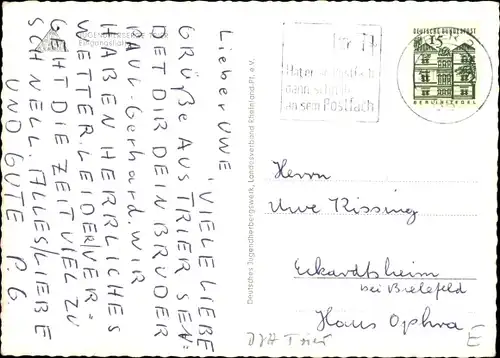 JUGENDHERBERGE TRIER
Eingangshalle
Lieber UWE
VIELE LIEBE
GRÜßE AUS TRIER SEN-
DET DIR DEIN BRUDER
PAUL-Gerhard. WIR
HABEN HERRLICHES
WETTER. LEIDER VER-
GEHT DIE ZEIT VIEL ZU
SCHNELL. ALLES LIEBE
UND GUTE P.G
Deutsches Jugendherbergswerk, Landesverband Rheinland-Pf. e.V.
Hat er ein Postfach
dann schreib
an sein Postfach
DEUTSCHE BUNDESPOST
15
BERLIN-TEGEL
Herrn
Uwe Kissing
Eckardtsheim
bei Bielefeld
Haus Ophra
DJH Trier
E